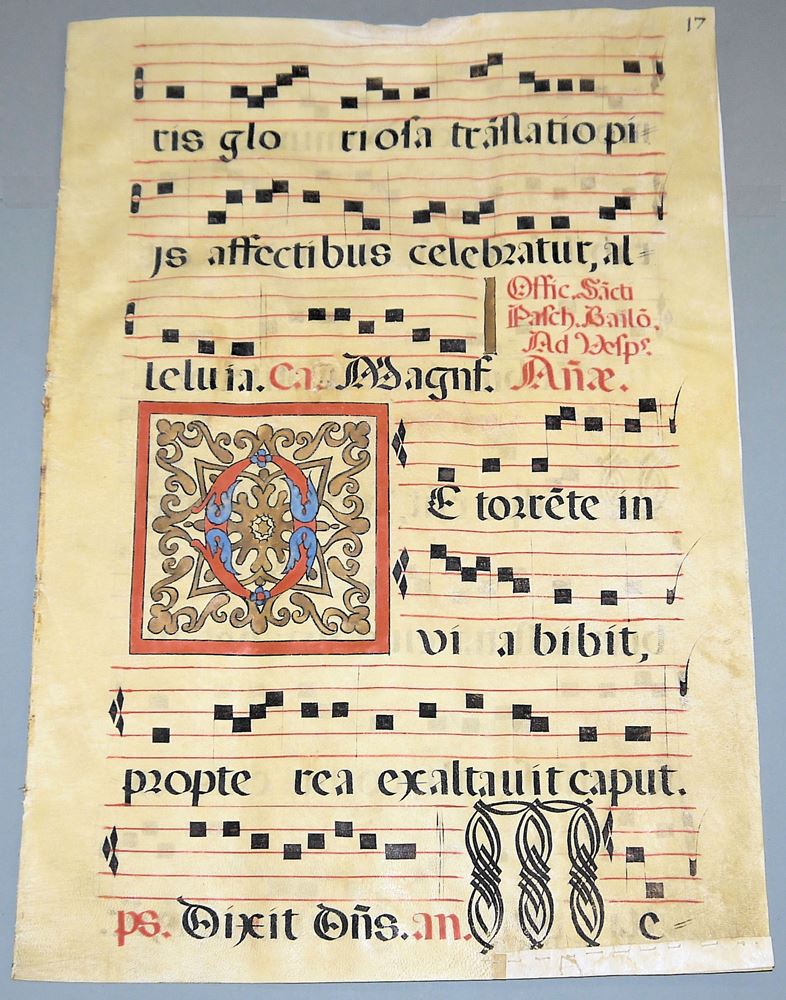 17
ris glo riosa trãslatio pi=
js affectibus celebratur, al=
Offic. Sãcti
Pasch. Bailõ.
Ad Vesps.
leluia. Ca. Magnf. Añæ.
E torrẽte in
vi a bibit,
propte rea exaltauit caput.
ps. Dixit Dñs. an. M e =